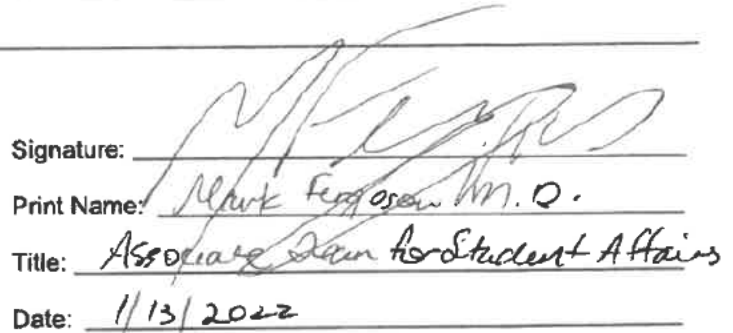 Signature:
Print Name: Mark Ferguson M.D.
Title: Associate Dean for Student Affairs
Date: 1/13/2022